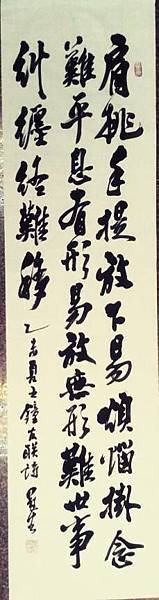 肩挑手提放下易煩惱掛念
難平息有形易放無形難世事
糾纏終難移
乙未夏之鐘友聯詩